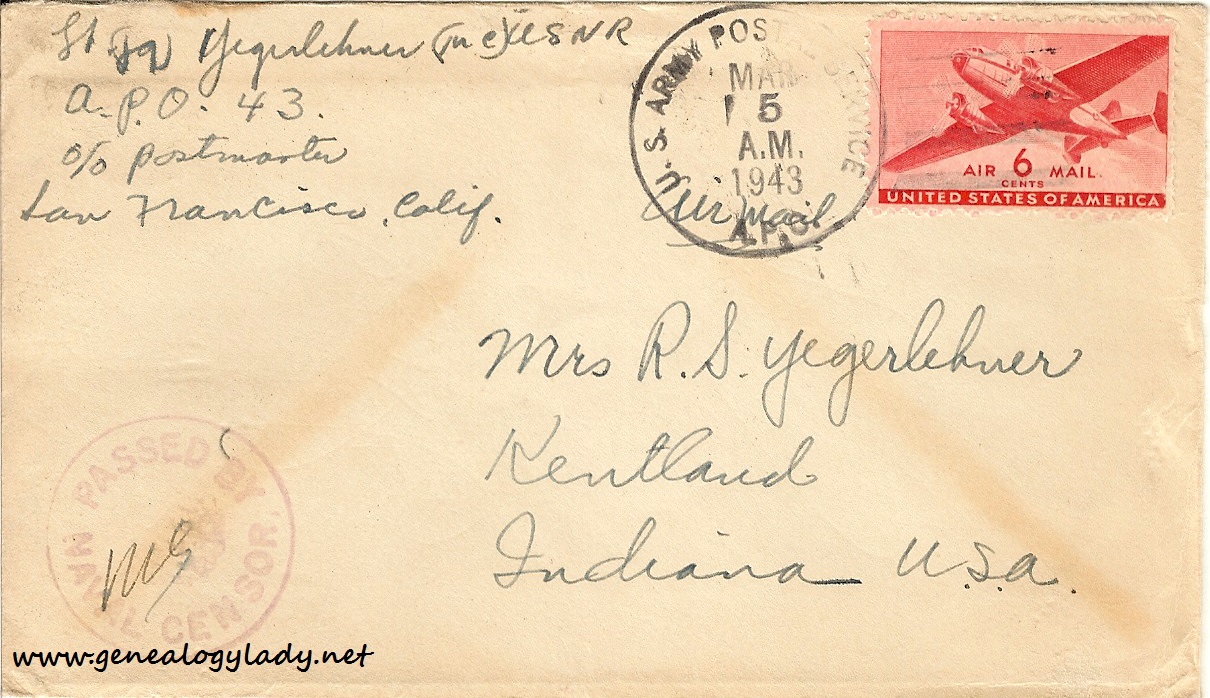 Lt (jg) Yegerlehner (mc) USNR
A.P.O. 43.
c/o Postmaster
San Francisco, Calif.
U.S. ARMY POSTAL SERVICE
MAR
5
A.M.
1943
A.P.O.
Air Mail
AIR 6 MAIL.
CENTS
UNITED STATES OF AMERICA
Mrs R. S. Yegerlehner
Kentland
Indiana U.S.A.
PASSED BY
NAVAL CENSOR
www.genealogylady.net